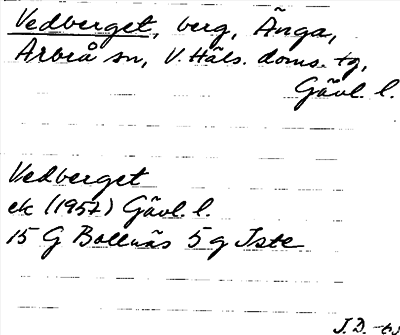 Vedberget, berg, Änga,
Arbrå sn, V. Häls. doms. tg,
Gävl. l.
Vedberget
ek (1957) Gävl. l.
15 G Bollnäs 5 g Iste
J.D.